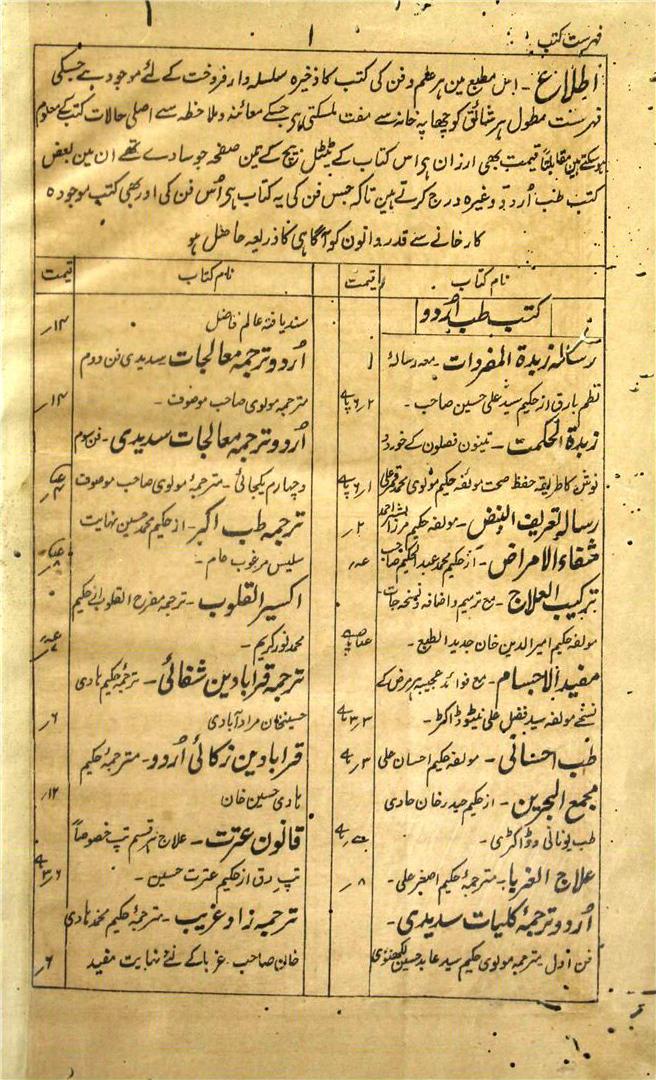 فہرست کتب
۱
اطلاع ۔ اس مطبع مین ہر علم و فن کی کتب کا ذخیرہ سلسلہ وار فروخت کے لئے موجود ہے جسکی
فہرست مطول ہر شائق کو چھاپہ خانہ سے مفت ملسکتی ہے جسکے معائنہ و ملاحظہ سے اصلی حالات کتب کے معلوم
ہوسکتے ہین قیمت بھی ارزان ہے اس کتاب کے ٹیٹل پیج کے تین صفحہ جو سادے تھے ان مین بعض
کتب طب اردو وغیرہ درج کرتے ہین تاکہ جس فن کی یہ کتاب ہے اُس فن کی اور بھی کتب موجودہ
کارخانے سے قدردانون کو آگاہی کا ذریعہ حاصل ہو
نام کتاب
قیمت
کتب طب اُردو
رسالہ زبدۃ المفردات ۔ معہ رسالۂ
نظم بارق از حکیم سید علی حسین صاحب ۔
زبدۃ الحکمت ۔ تینون فصلون کے خورد و
نوش کا طریقہ حفظ صحت مولفہ حکیم مولوی محمد
رسالہ تعریف النبض ۔ مولفہ حکیم مرزا
شفاء الامراض ۔ از حکیم محمد عبد الحکیم صاحب
ترکیب العلاج ۔ مع ترمیم و اضافہ و نسخہ جات
مولفہ حکیم امیر الدین خان جدید الطبع ۔
مفید الاجسام ۔ مع فوائد عجیبہ ہر مرض کے
نسخے مولفہ سید فضل علی نیٹو ڈاکٹر ۔
طب احسانی ۔ مولفہ حکیم احسان علی
مجمع البحرین ۔ از حکیم حیدر خان حاوی
طب یونانی و ڈاکٹری ۔
علاج الغربا ۔ مترجمۂ حکیم اصغر علی ۔ ۸؍
اُردو ترجمۂ کلیات سدیدی ۔
فن اول ۔ مترجمہ مولوی حکیم سید عابد حسین لکھنوی
نام کتاب
قیمت
سند یافتہ عالم فاضل ۱۴؍
اُردو ترجمہ معالجات سدیدی فن دوم
مترجمہ مولوی صاحب موصوف ۔ ۱۴؍
اُردو ترجمہ معالجات سدیدی ۔ فن سوم
و چہارم یکجائی ۔ مترجمۂ مولوی صاحب موصوف
ترجمہ طب اکبر ۔ از حکیم محمد حسین نہایت
سلیس مرغوب عام ۔
اکسیر القلوب ۔ ترجمہ مفرح القلوب از حکیم
محمد نور کریم ۔
ترجمہ قرابادین شفائی ۔ ترجمۂ حکیم ہادی
حسین خان مرادآبادی ۶؍
قرابادین ذکائی اُردو ۔ مترجمۂ حکیم
ہادی حسین خان ۱۲؍
قانون عترت ۔ علاج ہر قسم تپ خصوصاً
تپ دق از حکیم عترت حسین ۔
ترجمہ زاد غریب ۔ مترجمۂ حکیم محمد ہادی
خان صاحب ۔ غربا کے لئے نہایت مفید ۶؍